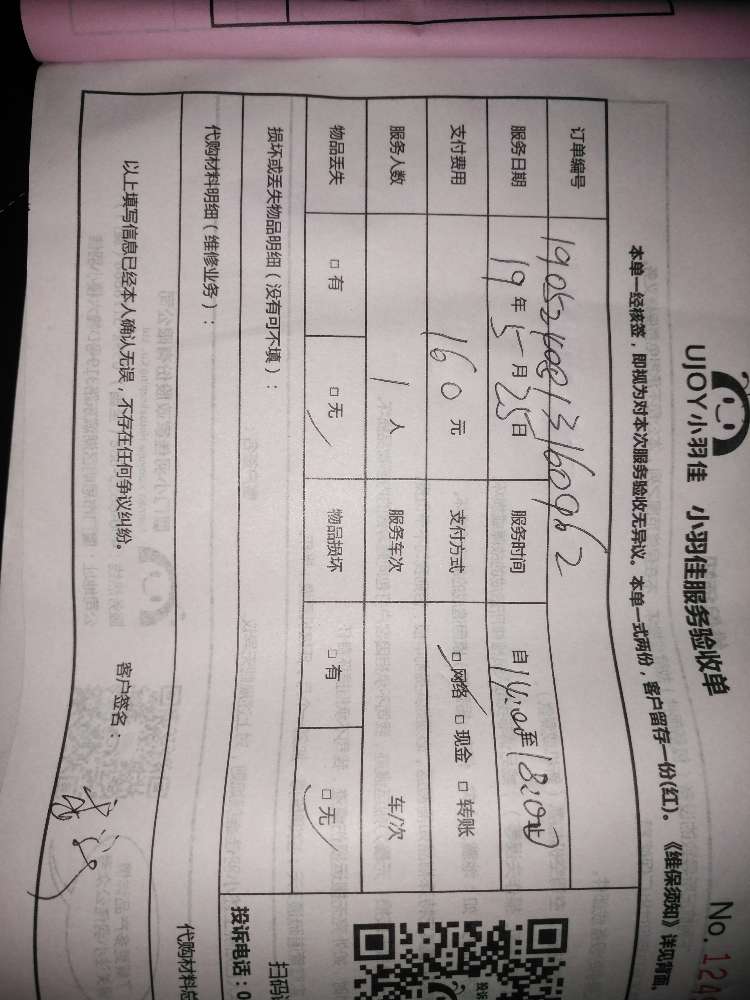 UJOY小羽佳 小羽佳服务验收单
No. 124
本单一经核签，即视为对本次服务验收无异议。本单一式两份，客户留存一份(红)。《维保须知》详见背面。
订单编号
服务日期 19年5月25日 服务时间 自14:00至18:00止
支付费用 160元 支付方式 □网络 □现金 □转账
服务人数 1人 服务车次 车/次
物品丢失 □有 □无 物品损坏 □有 □无
损坏或丢失物品明细（没有可不填）：
代购材料明细（维修业务）：
代购材料总
以上填写信息已经本人确认无误，不存在任何争议纠纷。 客户签名：
扫码
投诉电话：0